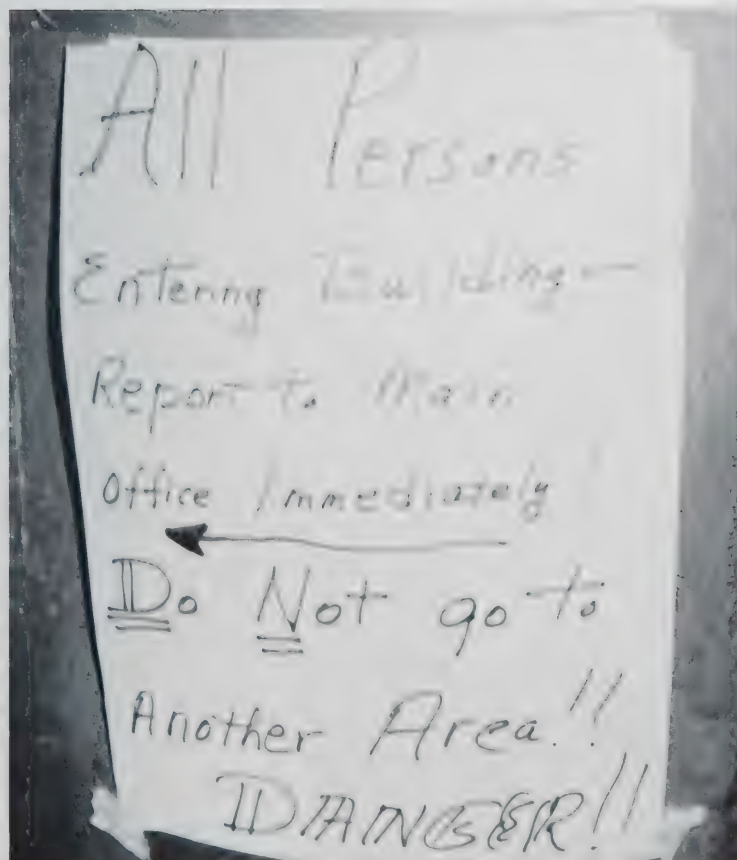 All Persons
Entering Building—
Report to Main
Office Immediately!
Do Not go to
Another Area!!
DANGER!!